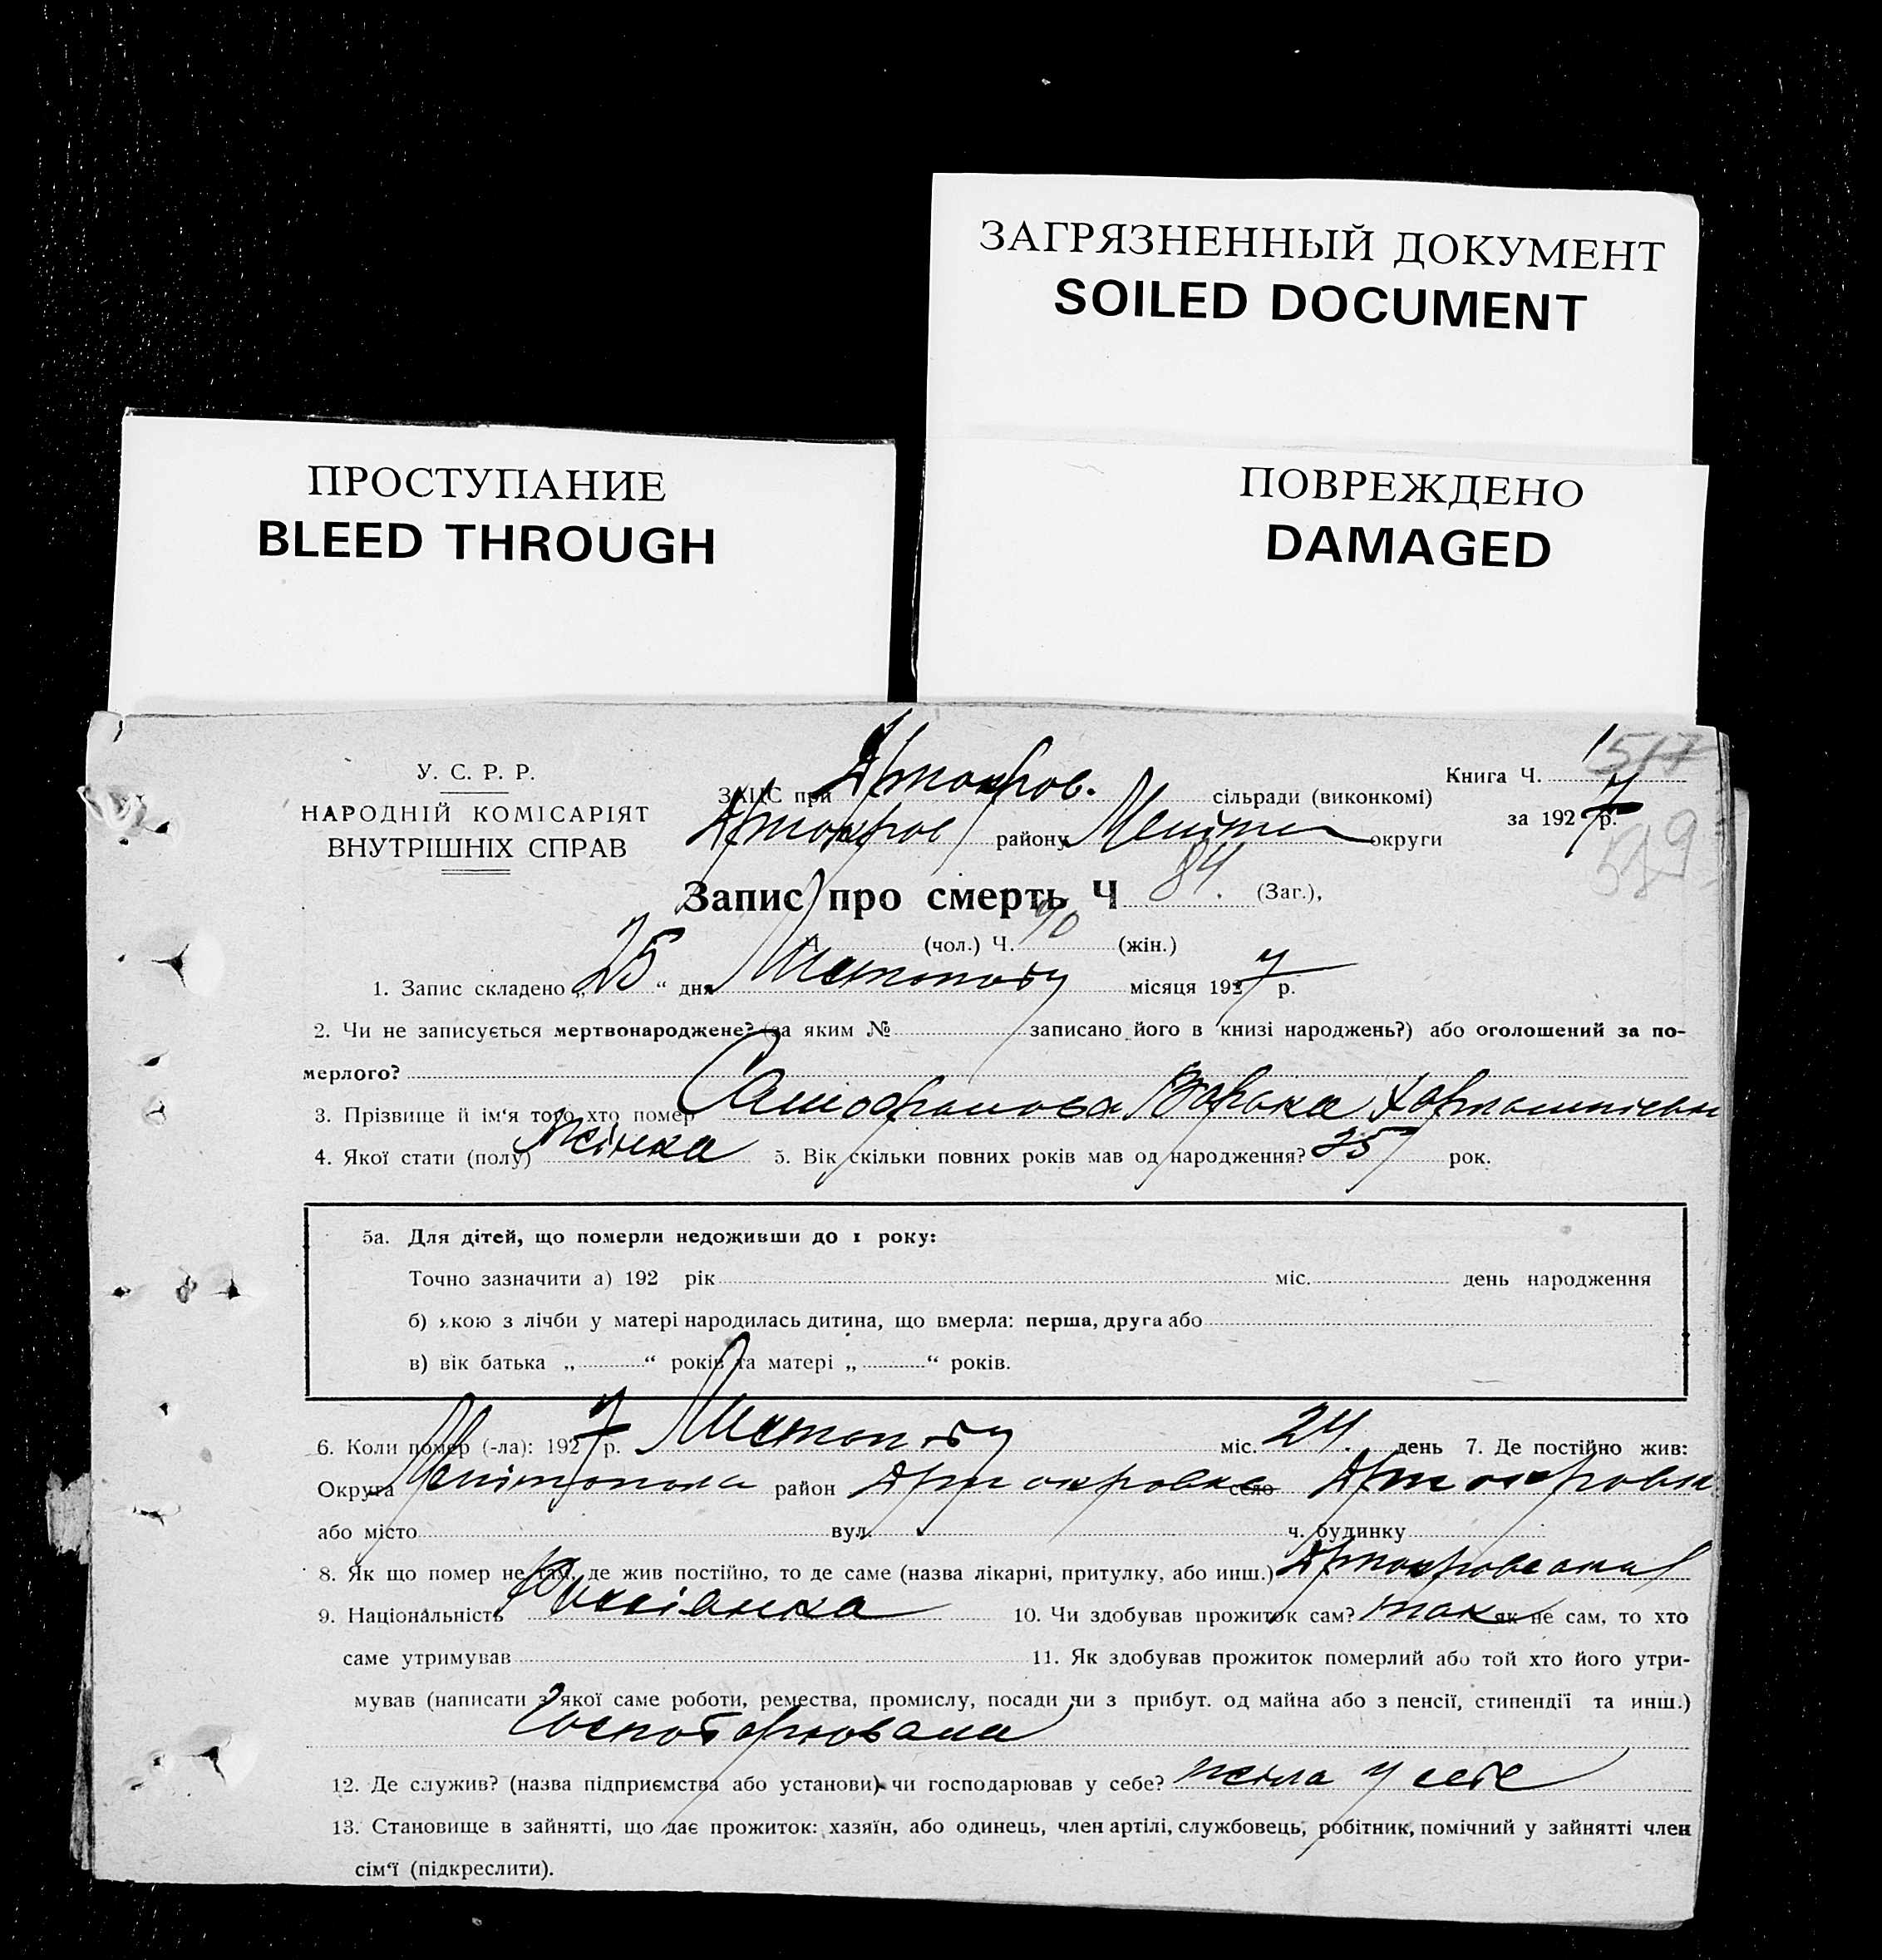 ЗАГРЯЗНЕННЫЙ ДОКУМЕНТ
SOILED DOCUMENT
ПРОСТУПАНИЕ
BLEED THROUGH
ПОВРЕЖДЕНО
DAMAGED
У. С. Р. Р.
НАРОДНІЙ КОМІСАРІЯТ
ВНУТРІШНІХ СПРАВ
ЗАЦС при сільради (виконкомі)
району округи
Книга Ч. 1 517
за 1927 р.
519
Запис про смерть Ч 84. (Заг.),
Ч. (чол.) Ч. (жін.)
1. Запис складено „25“ дня Листопаду місяця 1927 р.
2. Чи не записується мертвонароджене? (за яким № записано його в книзі народжень?) або оголошений за по-
мерлого?
3. Прізвище й ім'я того хто помер
4. Якої стати (полу) жінка 5. Вік скільки повних років мав од народження? рок.
5а. Для дітей, що померли недоживши до 1 року:
Точно зазначити а) 192 рік міс. день народження
б) якою з лічби у матері народилась дитина, що вмерла: перша, друга або
в) вік батька „ “ років та матері „ “ років.
6. Коли помер (-ла): 1927 р. Листопаду міс. 24 день 7. Де постійно жив:
Округа район село
або місто вул. ч. будинку
8. Як що помер не там, де жив постійно, то де саме (назва лікарні, притулку, або инш.)
9. Національність 10. Чи здобував прожиток сам? так як не сам, то хто
саме утримував 11. Як здобував прожиток померлий або той хто його утри-
мував (написати з якої саме роботи, ремества, промислу, посади чи з прибут. од майна або з пенсії, стипендії та инш.)
12. Де служив? (назва підприємства або установи) чи господарював у себе? жила у себе
13. Становище в зайнятті, що дає прожиток: хазяїн, або одинець, член артілі, службовець, робітник, помічний у зайнятті член
сім'ї (підкреслити).